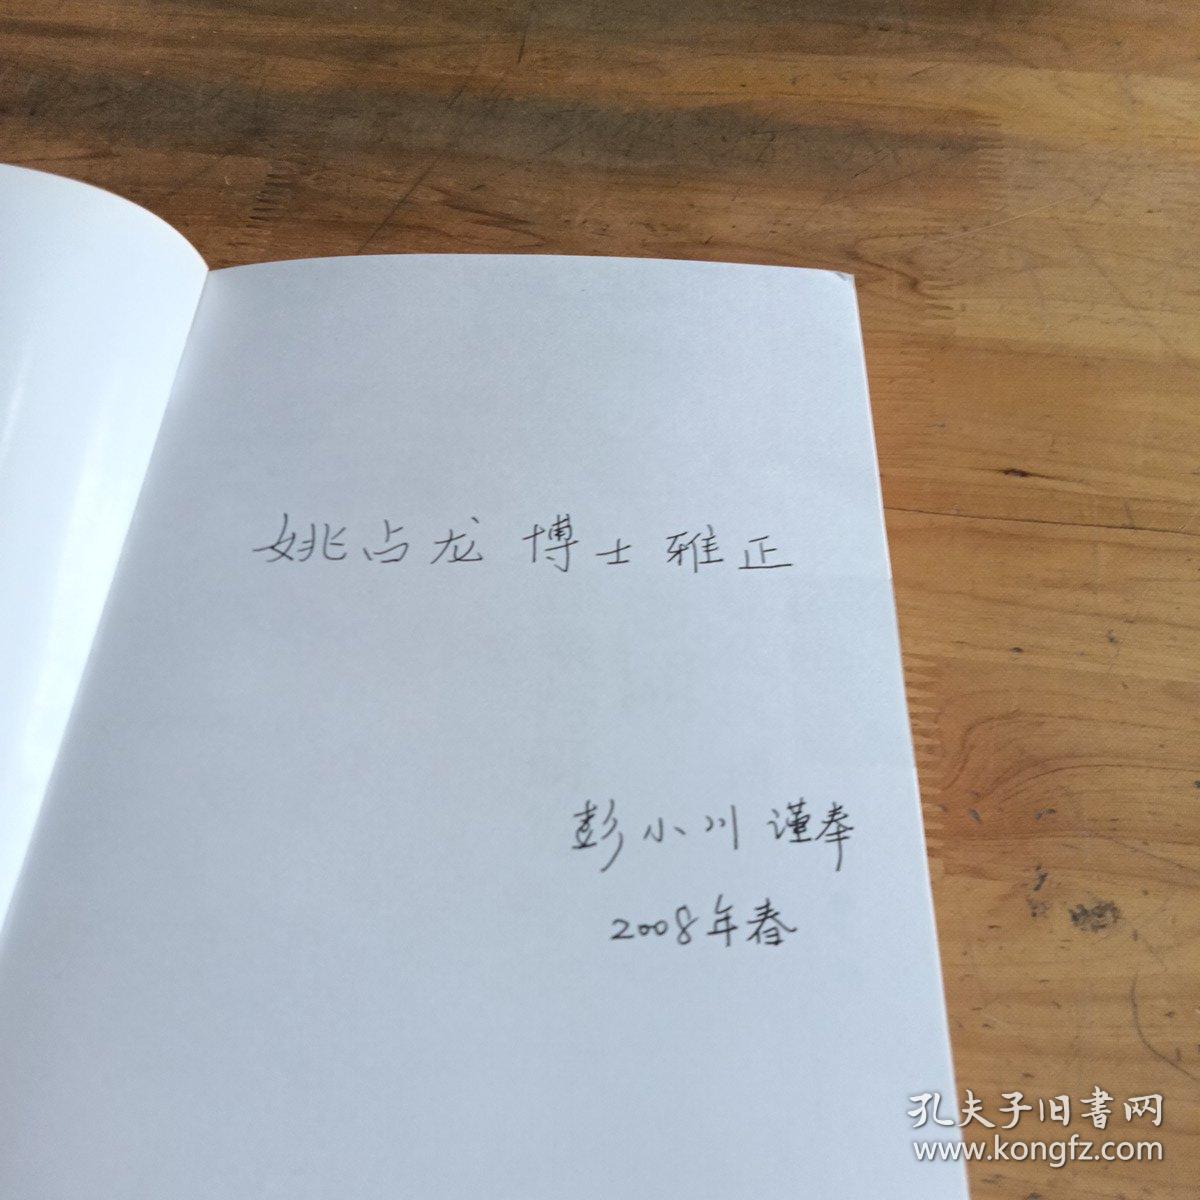 姚占龙 博士 雅正
彭小川 谨奉
2008年春
孔夫子旧書网
www.kongfz.com